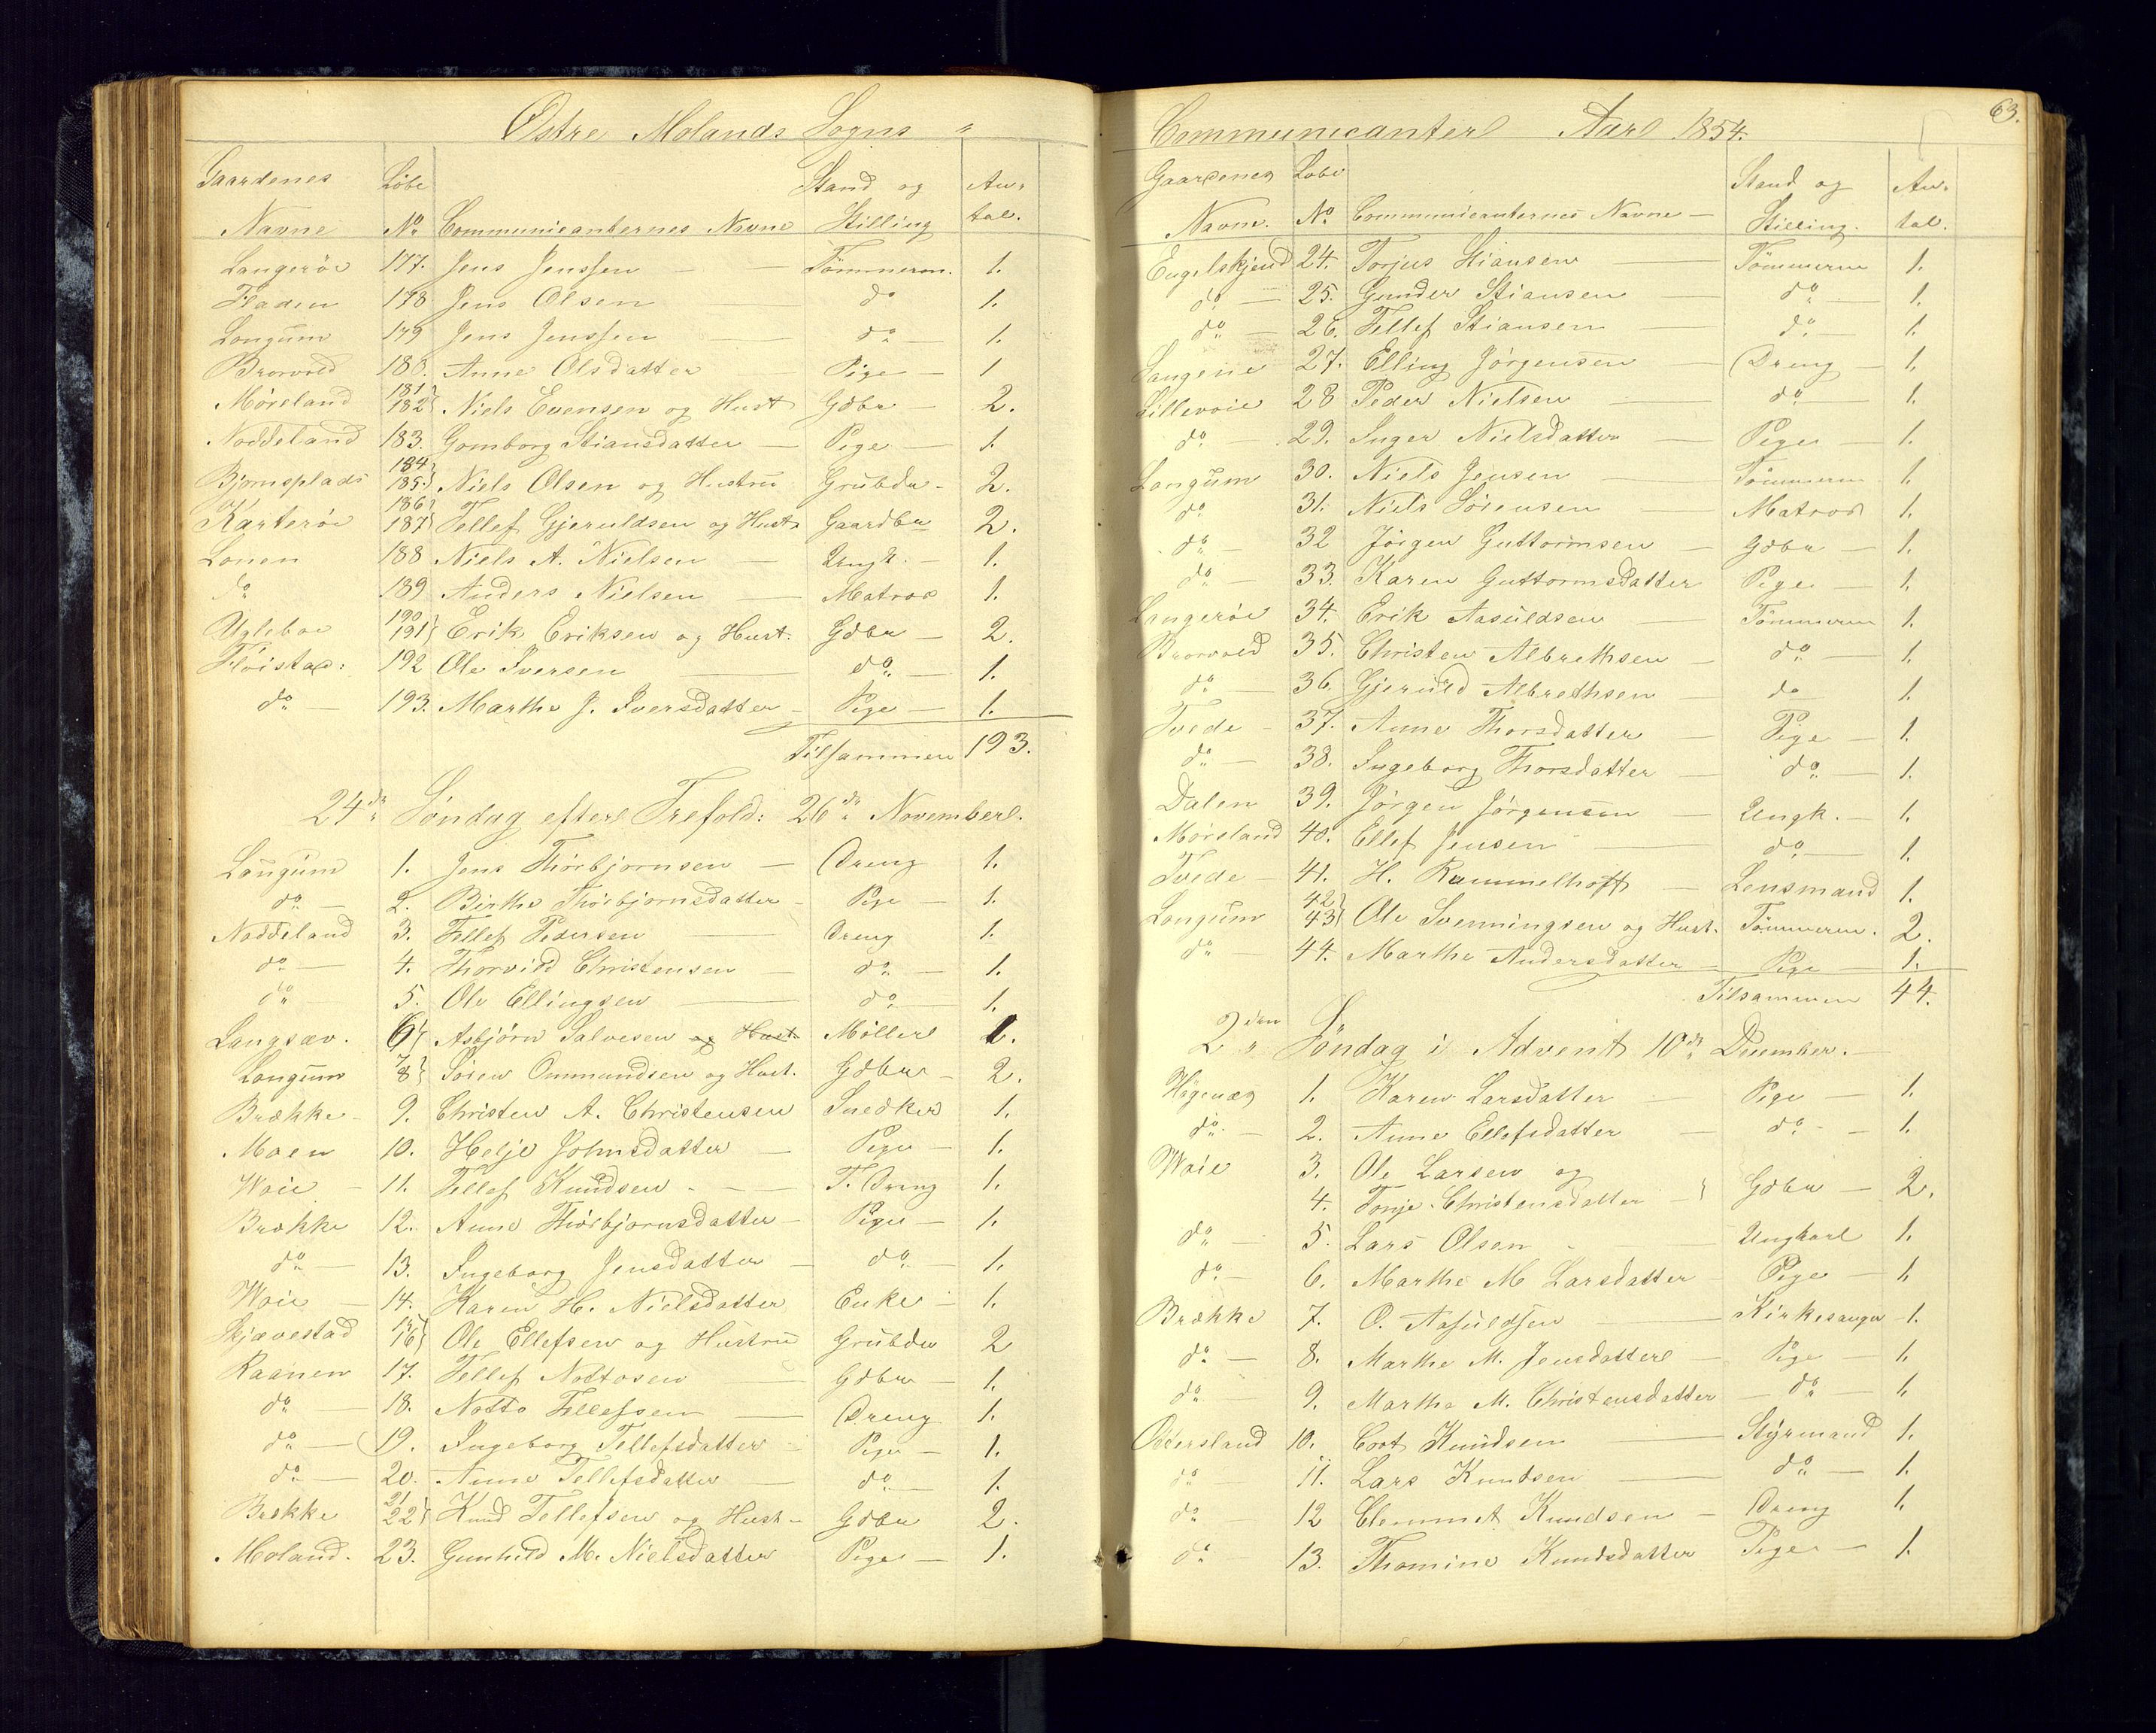 Østre Molands Sogns "
Gaardenes Løbe Stand og An-
Navne No Communicanternes Navne Stilling tal.
Langerøe 177. Jens Jenssen Tömmerm. 1.
Fladen 178 Jens Olsen do 1.
Longum 179 Jens Jenssen do 1.
Brovold 180. Anne Olsdatter Pige 1
Møreland 181 182 Niels Evensen og Hust Gdbr 2.
Noddeland 183. Gomborg Stiansdatter Pige 1.
Bjørnsplads 184 185. Niels Olsen og Hustru Grubdr. 2.
Karterøe 186 187 Tellef Gjeruldsen og Hust. Gaardbr 2.
Lonen 188 Niels A. Nielsen Ungk. 1.
do 189 Anders Nielsen Matros 1.
Ugleboe 190 191 Erik Eriksen og Hust. Gdbr 2.
Fløistad: 192 Ole Iversen do 1.
do 193. Marthe J. Iversdatter Pige 1.
Tilsammen 193.
24de Søndag efter Trefold: 26de November.
Longum 1. Jens Thorbjørnsen Dreng 1.
do 2. Birthe Thorbjørnsdatter Pige 1.
Noddeland 3. Tellef Pedersen Dreng 1.
do 4. Thorvild Christensen do 1.
do 5. Ole Ellingsen do 1.
Langsæv. 6 Asbjørn Salvesen og Hust. Møller 1.
Longum 7 8 Søren Ommundsen og Hust. Gdbr 2.
Brække 9. Christen A. Christensen Snedker 1.
Moen 10. Helje Johnsdatter Pige 1.
Woie 11. Tellef Knudsen T. Dreng 1.
Brække 12. Anne Thorbjørnsdatter Pige 1.
do 13. Ingeborg Jensdatter do 1.
Woie 14. Karen H. Nielsdatter Enke 1.
Skjævestad 15 16 Ole Ellefsen og Hustru Grubdr 2
Raanen 17. Tellef Nottosen Gdbr 1.
do 18. Notto Tellefsen Dreng 1.
do 19. Ingeborg Tellefsdatter Pige 1.
do 20. Anne Tellefsdatter do 1.
Brække 21 22 Knud Tellefsen og Hust Gdbr 2.
Moland. 23. Gunhild M. Nielsdatter Pige 1.
Communicanter Aar 1854. 63.
Gaardenes Løbe Stand og An-
Navne. No Communicanternes Navne Stilling. tal.
Engelskjend 24. Torjus Stiansen Tömmerm 1.
do 25. Gunder Stiansen do 1.
do 26. Tellef Stiansen do 1.
Langeie 27. Elling Jörgensen Dreng 1.
Lillevoie 28 Peder Nielsen do 1.
do 29. Inger Nielsdatter Pige 1.
Longum 30. Niels Jensen Tömmerm 1.
do 31. Niels Sörensen Matros 1.
do 32 Jörgen Guttormsen Gdbr 1.
do 33. Karen Guttormsdatter Pige 1.
Langerøe 34. Erik Aasuldsen Tömmerm 1.
Brovold 35. Christen Albrethsen do 1.
do 36. Gjeruld Albrethsen do 1.
Tvede 37. Anne Thorsdatter Pige 1.
do 38. Ingeborg Thorsdatter do 1.
Dalen 39. Jörgen Jörgensen Ungk. 1.
Møreland 40. Ellef Jensen do 1.
Tvede 41. H. Rammelhoff Lensmand 1.
Longum 42 43 Ole Svenningsen og Hust. Tömmerm. 2.
do 44. Marthe Andersdatter Pige 1.
Tilsammen 44.
2den Søndag i Advent 10de December.
Hägenæs 1. Karen Larsdatter Pige 1.
do 2. Anne Ellefsdatter do 1.
Woie 3. Ole Larsen og
4. Tonje Christensdatter Gdbr 2.
do 5. Lars Olsen Ungkarl 1.
do 6. Marthe M Larsdatter Pige 1.
Brække 7. O. Aasuldsen Kirkesanger 1.
do 8. Marthe M. Jensdatter Pige 1.
do 9. Marthe M. Christensdatter do 1.
Oddersland 10. Coot Knudsen Styrmand 1.
do 11. Lars Knudsen do 1.
do 12 Clemmet Knudsen Dreng 1.
do 13. Thomine Knudsdatter Pige 1.